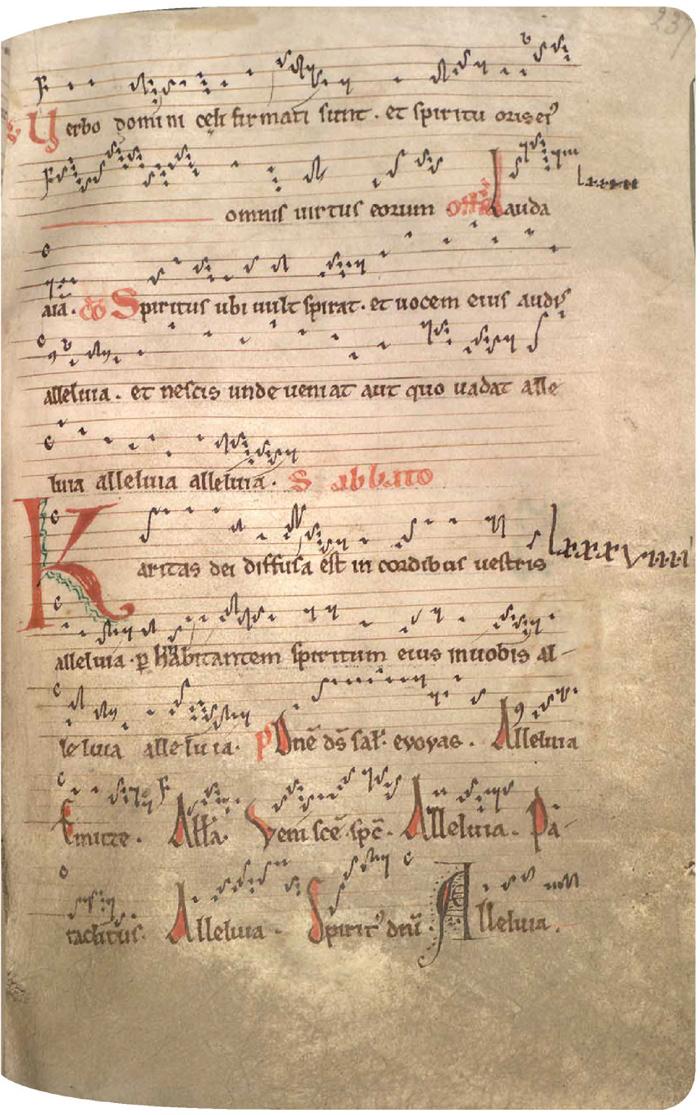 237
Verbo domini celi firmati sunt. et spiritu oris ei9
omnis uirtus eorum off Lauda
aia. co Spiritus ubi uult spirat. et uocem eius audis
alleluia. et nescis unde ueniat aut quo uadat alle
luia alleluia alleluia. Sabbato
Karitas dei diffusa est in cordibus uestris lxxxviiii
alleluia. p habitantem spiritum eius inuobis al-
leluia alleluia. p Dne ds sal. evovae. Alleluia
Emitte. Alla. Veni sce spc. Alleluia. Pa-
raclitus. Alleluia. Spirit9 dni Alleluia.